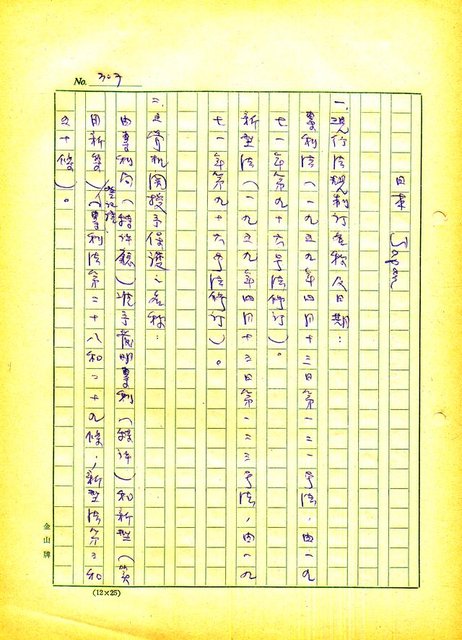 No. 303
日本 Japan
一.現行法規制訂名称及日期：
專利法（一九五九年四月十三日第一二一号法，由一九
七一年第九十六号法修订）。
新型法（一九五九年四月十三日第一二三号法，由一九
七一年第九十六号法修订）。
二.主管机関授予保護之名称：
由專利局（特许廳）准予發明專利（特许）和新型（实
用新案）
登记證
（專利法第二十八和二十九條；新型法第三和
五十條）。
金山牌
(12×25)